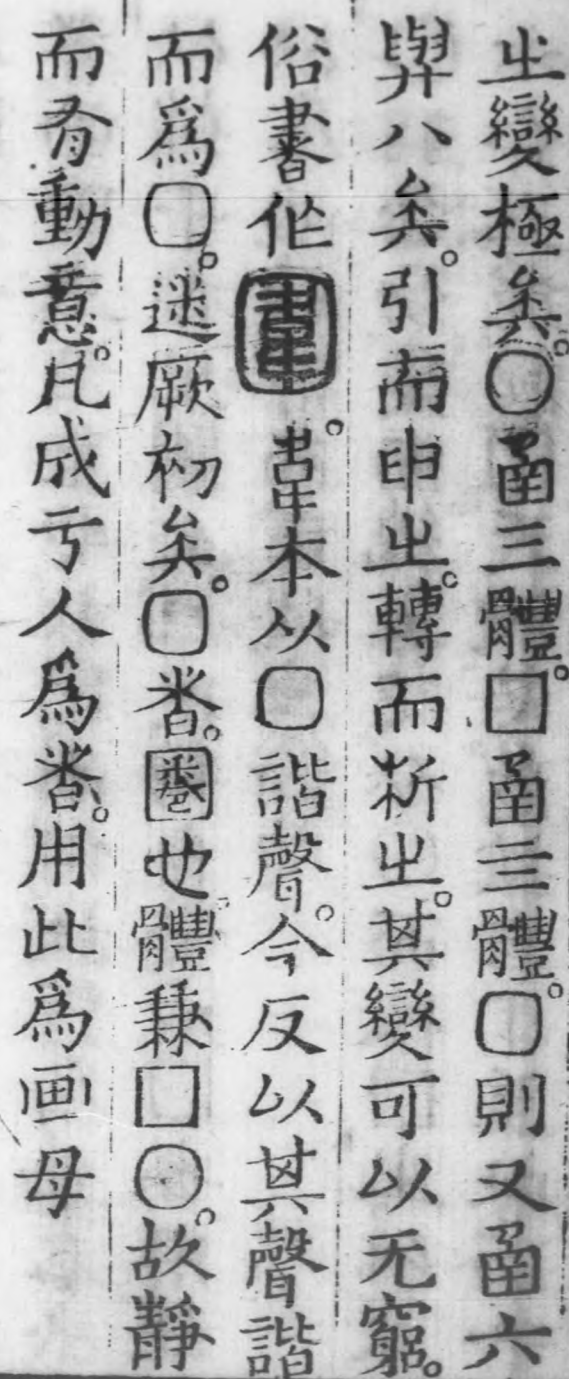 㞢變極矣。○圅三體。□圅亖體。▢則又圅六
與八矣。引而申㞢。轉而析㞢。其變可以无窮。
俗書作圍。韋本从▢諧聲。今反以其聲諧
而爲▢。迷厥初矣。▢者。圈也體兼□○。故靜
而有動意。凡成亏人爲者。用此爲画母